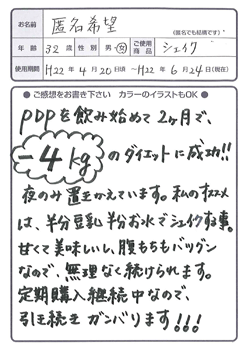 お名前 匿名希望
(匿名でも結構です)
年齢 32歳 性別 男・女 ご使用商品 シェイク
使用期間 H22年4月20日頃 〜 H22年6月24日(現在)
●ご感想をお書き下さい カラーのイラストもOK●
PDPを飲み始めて2ヶ月で、
-4kgのダイエットに成功!!
夜のみ置きかえています。私のオススメ
は、半分豆乳半分お水でシェイクする事。
甘くて美味しいし、腹もちもバツグン
なので、無理なく続けられます。
定期購入継続中なので、
引き続きガンバります!!!